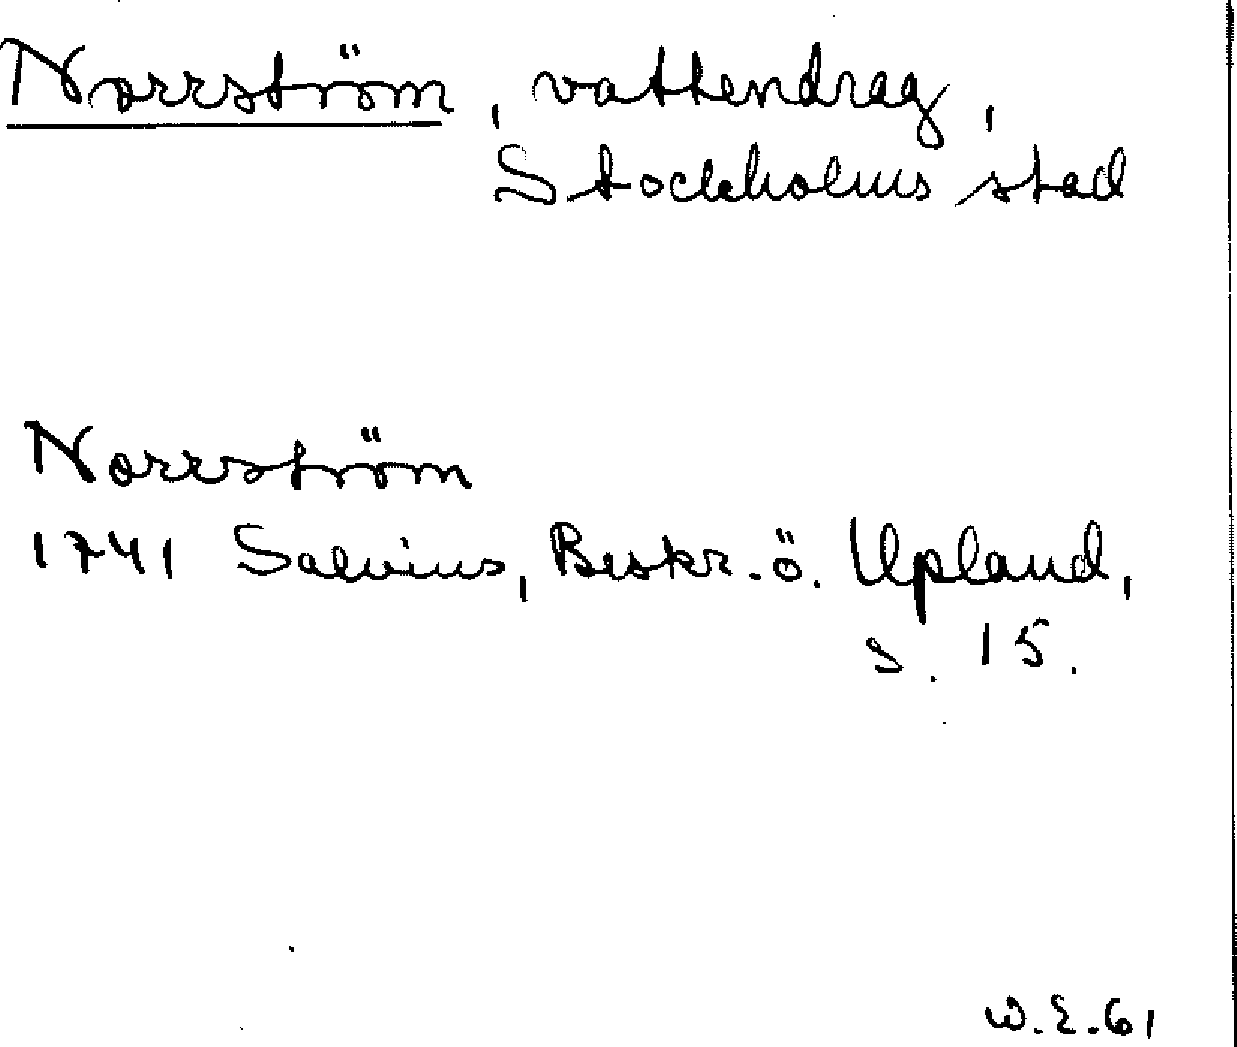 Norrström, vattendrag,
Stockholms stad
Norrström
1741 Salvius, Beskr. ö. Upland,
s. 15.
W.E.61